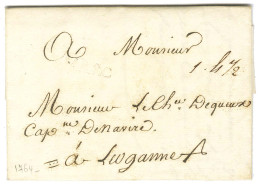 A Monsieur
1-h 1/2
Monsieur Le Cher Dequeux
Capne DeNavire.
1764
à Leoganne